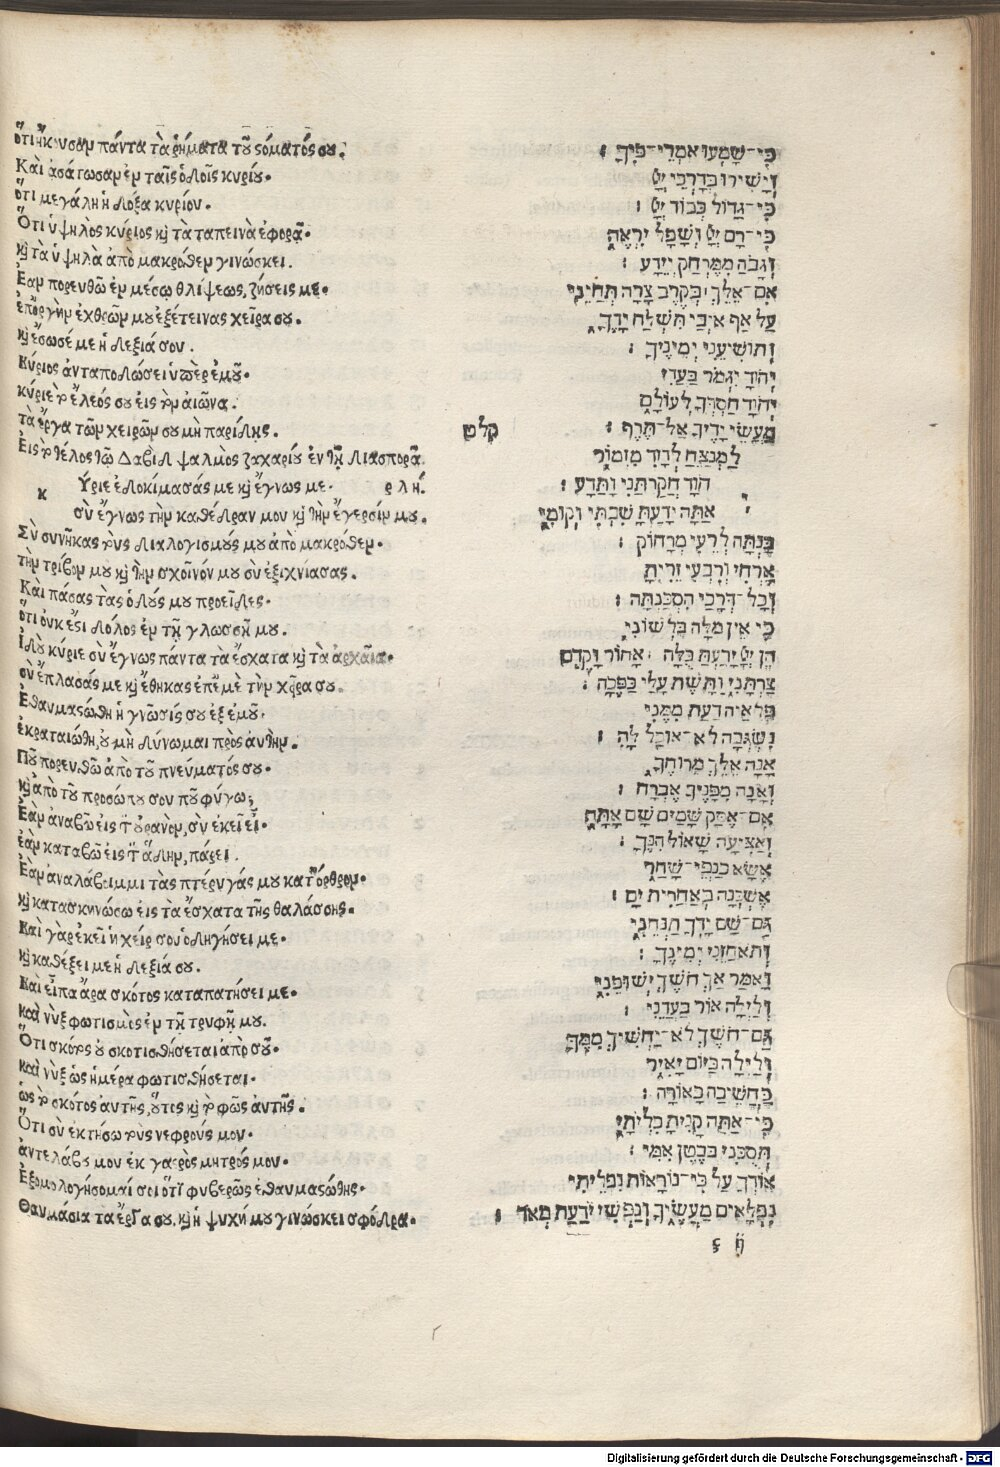 ὅτι ἤκουσαν πάντα τὰ ῥήματα τοῦ στόματός σου.
Καὶ ἀσάτωσαν ἐν ταῖς ὁδοῖς κυρίου.
ὅτι μεγάλη ἡ δόξα κυρίου.
Ὅτι ὑψηλὸς κύριος καὶ τὰ ταπεινὰ ἐφορᾷ.
καὶ τὰ ὑψηλὰ ἀπὸ μακρόθεν γινώσκει.
Ἐὰν πορευθῶ ἐν μέσῳ θλίψεως, ζήσεις με.
ἐπ' ὀργὴν ἐχθρῶν μου ἐξέτεινας χεῖρα σου.
καὶ ἔσωσέ με ἡ δεξιά σου.
Κύριος ἀνταποδώσει ὑπὲρ ἐμοῦ.
κύριε τὸ ἔλεός σου εἰς τὸν αἰῶνα.
τὰ ἔργα τῶν χειρῶν σου μὴ παρίδῃς.
Εἰς τὸ τέλος τῷ Δαβιδ ψαλμὸς ζαχαρίου ἐν τῇ διασπορᾷ.
κ Ύριε ἐδοκίμασάς με καὶ ἔγνως με. ρλή.
σὺ ἔγνως τὴν καθέδραν μου καὶ τὴν ἔγερσίν μου.
Σὺ συνῆκας τοὺς διαλογισμούς μου ἀπὸ μακρόθεν.
τὴν τρίβον μου καὶ τὴν σχοῖνόν μου σὺ ἐξιχνίασας.
Καὶ πάσας τὰς ὁδούς μου προεῖδες.
ὅτι οὐκ ἔστι δόλος ἐν τῇ γλώσσῃ μου.
Ἰδοὺ κύριε σὺ ἔγνως πάντα τὰ ἔσχατα καὶ τὰ ἀρχαῖα.
σὺ ἔπλασάς με καὶ ἔθηκας ἐπ' ἐμὲ τὴν χεῖρα σου.
Ἐθαυμαστώθη ἡ γνῶσίς σου ἐξ ἐμοῦ.
ἐκραταιώθη, οὐ μὴ δύνωμαι πρὸς αὐτήν.
Ποῦ πορευθῶ ἀπὸ τοῦ πνεύματός σου.
καὶ ἀπὸ τοῦ προσώπου σου ποῦ φύγω;
Ἐὰν ἀναβῶ εἰς τὸν οὐρανὸν, σὺ ἐκεῖ εἶ.
ἐὰν καταβῶ εἰς τὸν ᾅδην, πάρει.
Ἐὰν ἀναλάβοιμι τὰς πτέρυγάς μου κατ' ὄρθρον.
καὶ κατασκηνώσω εἰς τὰ ἔσχατα τῆς θαλάσσης.
Καὶ γὰρ ἐκεῖ ἡ χείρ σου ὁδηγήσει με.
καὶ καθέξει με ἡ δεξιά σου.
Καὶ εἶπα ἄρα σκότος καταπατήσει με.
καὶ νὺξ φωτισμὸς ἐν τῇ τρυφῇ μου.
Ὅτι σκότος οὐ σκοτισθήσεται ἀπὸ σοῦ.
καὶ νὺξ ὡς ἡμέρα φωτισθήσεται.
ὡς τὸ σκότος αὐτῆς, οὕτως καὶ τὸ φῶς αὐτῆς.
Ὅτι σὺ ἐκτήσω τοὺς νεφρούς μου.
ἀντελάβου μου ἐκ γαστρὸς μητρός μου.
Ἐξομολογήσομαί σοι ὅτι φοβερῶς ἐθαυμαστώθης.
Θαυμάσια τὰ ἔργα σου, καὶ ἡ ψυχή μου γινώσκει σφόδρα.
כִּי־שָׁמְעוּ אִמְרֵי־פִיךָ :
וְיָשִׁירוּ בְּדַרְכֵי יְיָ
כִּי־גָדוֹל כְּבוֹד יְיָ :
כִּי־רָם יְיָ וְשָׁפָל יִרְאֶה
וְגָבֹהַּ מִמֶּרְחָק יְיֵדָע :
אִם־אֵלֵךְ בְּקֶרֶב צָרָה תְּחַיֵּנִי
עַל אַף אֹיְבַי תִּשְׁלַח יָדֶךָ
וְתוֹשִׁיעֵנִי יְמִינֶךָ :
יְהוָֹה יִגְמֹר בַּעֲדִי
יְהוָֹה חַסְדְּךָ לְעוֹלָם
מַעֲשֵׂי יָדֶיךָ אַל־תֶּרֶף :
קלט לַמְנַצֵּחַ לְדָוִד מִזְמוֹר
י הוָֹה חֲקַרְתַּנִי וַתֵּדָע :
אַתָּה יָדַעְתָּ שִׁבְתִּי וְקוּמִי
בַּנְתָּה לְרֵעִי מֵרָחוֹק :
אָרְחִי וְרִבְעִי זֵרִיתָ
וְכָל־דְּרָכַי הִסְכַּנְתָּה :
כִּי אֵין מִלָּה בִּלְשׁוֹנִי
הֵן יְיָ יָדַעְתָּ כֻלָּהּ : אָחוֹר וָקֶדֶם
צַרְתָּנִי וַתָּשֶׁת עָלַי כַּפֶּכָה :
פְּלִאיָה דַעַת מִמֶּנִּי
נִשְׂגְּבָה לֹא־אוּכַל לָהּ :
אָנָה אֵלֵךְ מֵרוּחֶךָ
וְאָנָה מִפָּנֶיךָ אֶבְרָח :
אִם־אֶסַּק שָׁמַיִם שָׁם אָתָּה
וְאַצִּיעָה שְׁאוֹל הִנֶּךָּ :
אֶשָּׂא כַנְפֵי־שָׁחַר
אֶשְׁכְּנָה בְּאַחֲרִית יָם :
גַּם־שָׁם יָדְךָ תַנְחֵנִי
וְתֹאחֲזֵנִי יְמִינֶךָ :
וָאֹמַר אַךְ חֹשֶׁךְ יְשׁוּפֵנִי
וְלַיְלָה אוֹר בַּעֲדֵנִי :
גַּם־חֹשֶׁךְ לֹא־יַחְשִׁיךְ מִמֶּךָּ
וְלַיְלָה כַּיּוֹם יָאִיר
כַּחֲשֵׁיכָה כָּאוֹרָה :
כִּי־אַתָּה קָנִיתָ כִלְיֹתָי
תְּסֻכֵּנִי בְּבֶטֶן אִמִּי :
אוֹדְךָ עַל כִּי־נוֹרָאוֹת נִפְלֵיתִי
נִפְלָאִים מַעֲשֶׂיךָ וְנַפְשִׁי יֹדַעַת מְאֹד :
ς ij
Digitalisierung gefördert durch die Deutsche Forschungsgemeinschaft - DFG